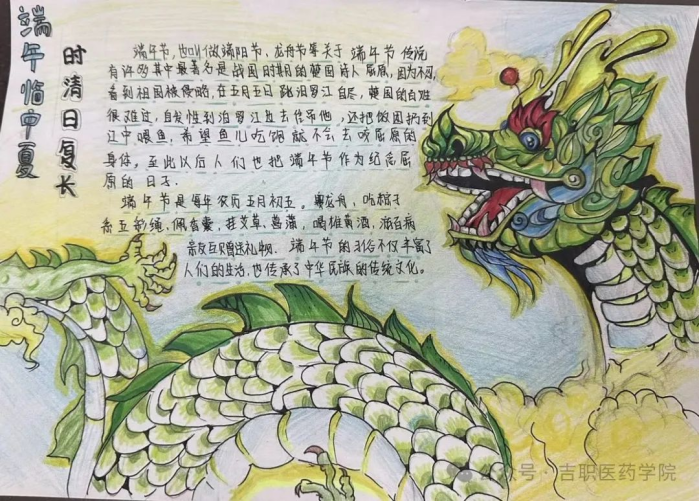 端午临中夏
时清日复长
端午节,也叫做端阳节、龙舟节等关于端午节传说
有许多其中最著名是战国时期的楚国诗人屈原,因为不忍
看到祖国被侵略,在五月五日跳汨罗江自尽,楚国的百姓
很难过,自发性到汨罗江边去传吊他,还把饭团扔到
江中喂鱼,希望鱼儿吃饱就不会去咬屈原的
身体。至此以后人们也把端午节作为纪念屈
原的日子.
端午节是每年农历五月初五。赛龙舟、吃粽子
五彩绳,佩香囊,挂艾草、菖蒲,喝雄黄酒,游百病
亲友互赠送礼物.端午节的习俗不仅丰富了
人们的生活,也传承了中华民族的传统文化。
公众号·吉职医药学院